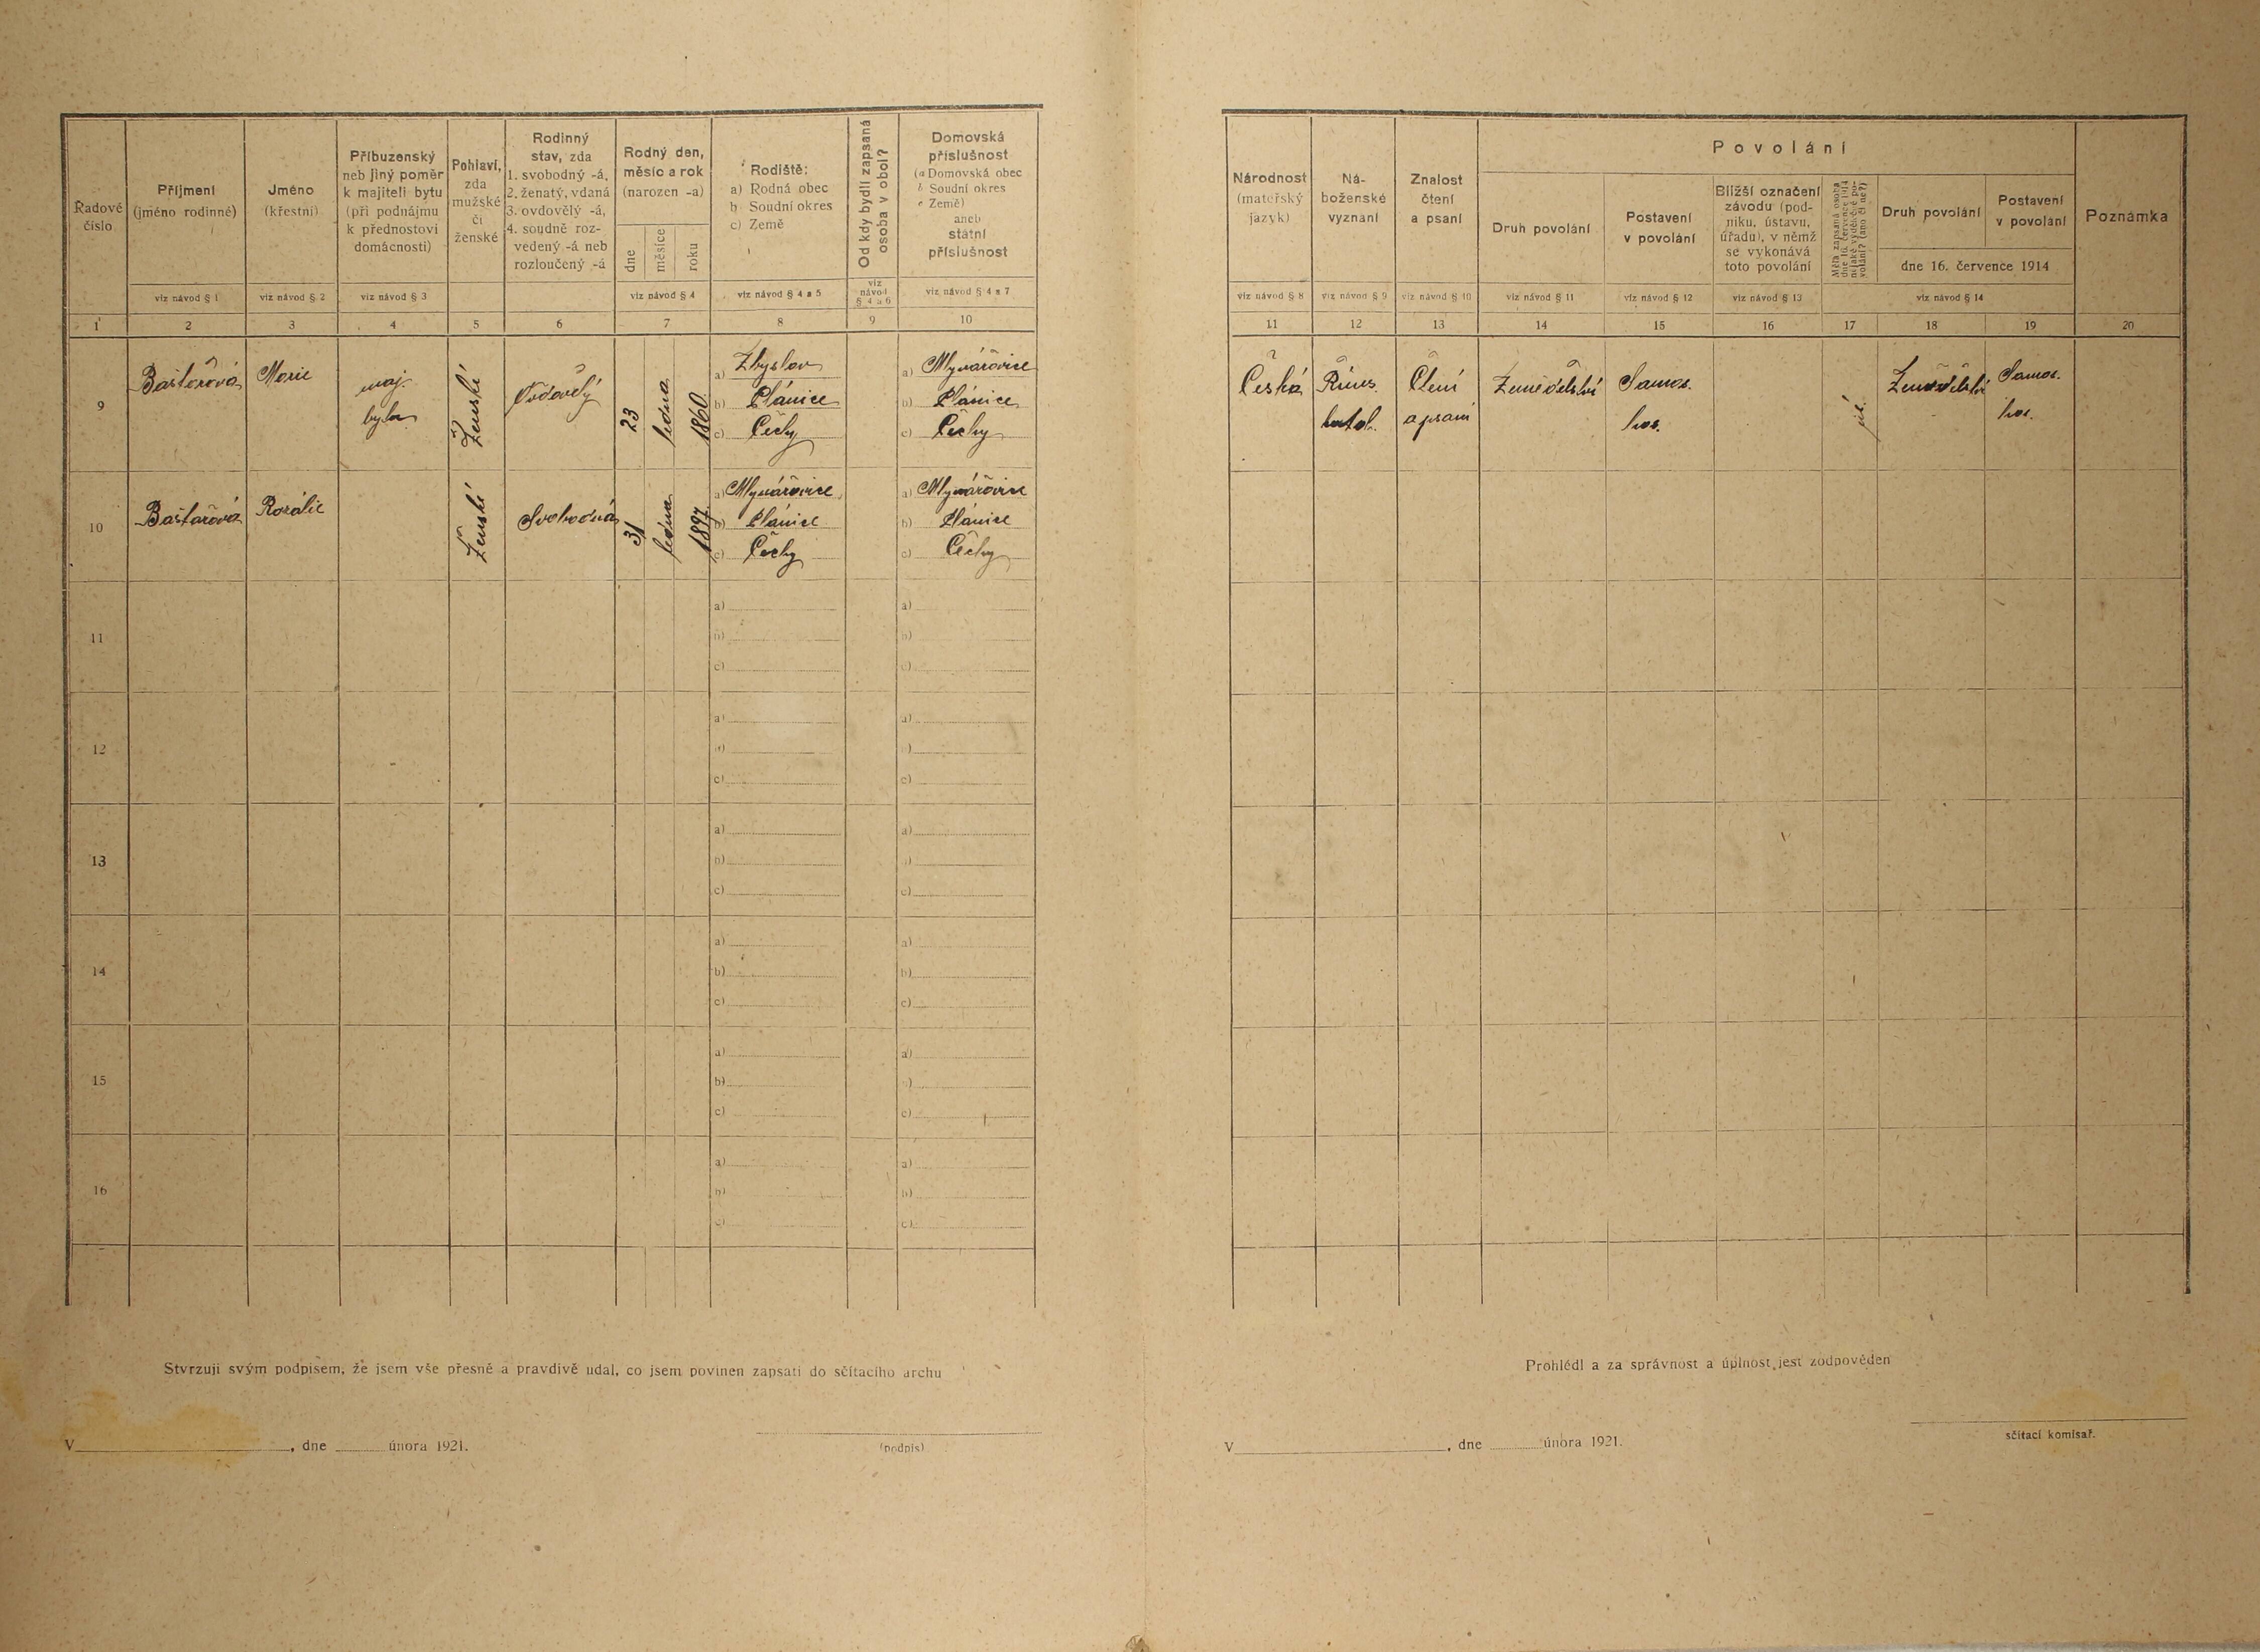 Řadové
číslo
Příjmení
(jméno rodinné)
viz návod § 1
Jméno
(křestní)
viz návod § 2
Příbuzenský
neb jiný poměr
k majiteli bytu
(při podnájmu
k přednostovi
domácnosti)
viz návod § 3
Pohlaví,
zda
mužské
či
ženské
Rodinný
stav, zda
1. svobodný -á,
2. ženatý, vdaná
3. ovdovělý -á,
4. soudně roz-
vedený -á neb
rozloučený -á
Rodný den,
měsíc a rok
(narozen -a)
dne
měsíce
roku
viz návod § 4
Rodiště:
a) Rodná obec
b) Soudní okres
c) Země
viz návod § 4 a 5
Od kdy bydlí zapsaná
osoba v obci?
viz
návod
§ 4 a 6
Domovská
příslušnost
(a Domovská obec
b Soudní okres
c Země)
aneb
státní
příslušnost
viz návod § 4 a 7
1 2 3 4 5 6 7 8 9 10
9 Baštařová Marie maj. bytu Ženské 23 ledna 1860
a) Zbyslav
b) Plánice
c) Čechy
a) Mlynářovice
b) Plánice
c) Čechy
10 Baštařová Rozálie Ženské Svobodná 31 ledna 1897
a) Mlynářovice
b) Plánice
c) Čechy
a) Mlynářovice
b) Plánice
c) Čechy
11
a) a)
b) b)
c) c)
12
a) a)
b) b)
c) c)
13
a) a)
b) b)
c) c)
14
a) a)
b) b)
c) c)
15
a) a)
b) b)
c) c)
16
a) a)
b) b)
c) c)
Stvrzuji svým podpisem, že jsem vše přesně a pravdivě udal, co jsem povinen zapsati do sčítacího archu
V , dne února 1921.
(podpis)
Národnost
(mateřský
jazyk)
viz návod § 8
Ná-
boženské
vyznání
viz návod § 9
Znalost
čtení
a psaní
viz návod § 10
Povolání
Druh povolání
viz návod § 11
Postavení
v povolání
viz návod § 12
Bližší označení
závodu (pod-
niku, ústavu,
úřadu), v němž
se vykonává
toto povolání
viz návod § 13
Měla zapsaná osoba
dne 16. července 1914
nějaké výdělečné po-
volání? (ano či ne?)
Druh povolání
Postavení
v povolání
dne 16. července 1914
viz návod § 14
Poznámka
11 12 13 14 15 16 17 18 19 20
Česká Říms. Čtení Zemědělství Samos. Zemědělství Samos.
katol. a psaní hos. hos.
Prohlédl a za správnost a úplnost jest zodpověden
V , dne února 1921.
sčítací komisař.